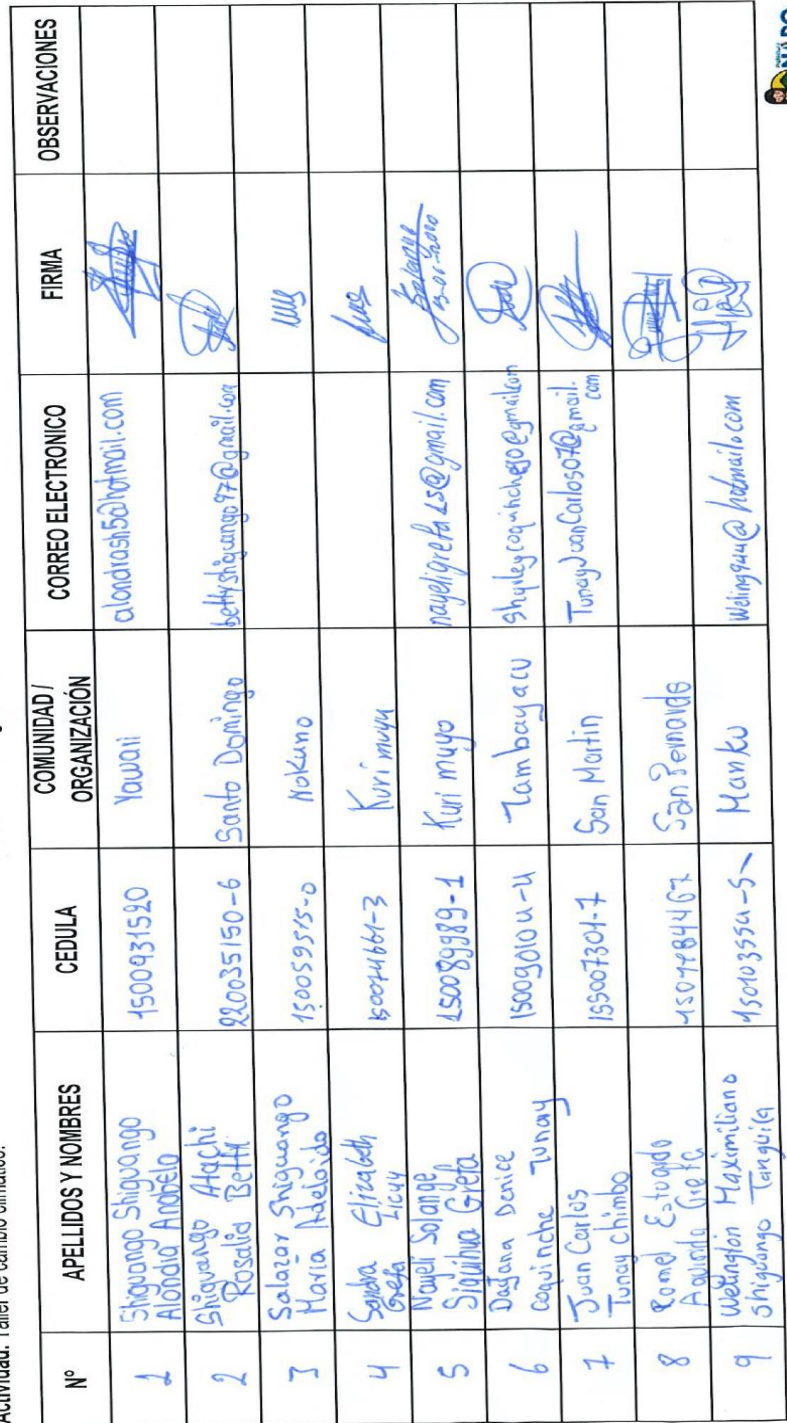 Actividad: Taller de cambio climático.
Nº APELLIDOS Y NOMBRES CEDULA COMUNIDAD / ORGANIZACIÓN CORREO ELECTRONICO FIRMA OBSERVACIONES
1 Shiguango Shiguango
Alondra Anabela 1500931520 Yawari alondrash5@hotmail.com
2 Shiguango Atachi
Rosalia Betty 220035150-6 Santo Domingo bettyshiguango97@gmail.com
3 Salazar Shiguango
Maria Adelaida 150059515-0 Nokuno
4 Sandra Elizabeth
Grefa Licuy 150074661-3 Kuri muyu
5 Nayeli Solange
Siquihua Grefa 150089989-1 Kuri muyo nayeligrefa25@gmail.com
6 Dayana Denice
Coquinche Tunay 15009010u-u Tambayacu
7 Juan Carlos
Tunay Chimbo 155007301-7 San Martin TunayJuanCarlos07@gmail.
com
8 Romel Estuardo
Grefa 1501184467 San Fernando
9 Welington Maximiliano
Shiguango Tanguila 15010355u-5 Manku @hotmail.com
NAPO